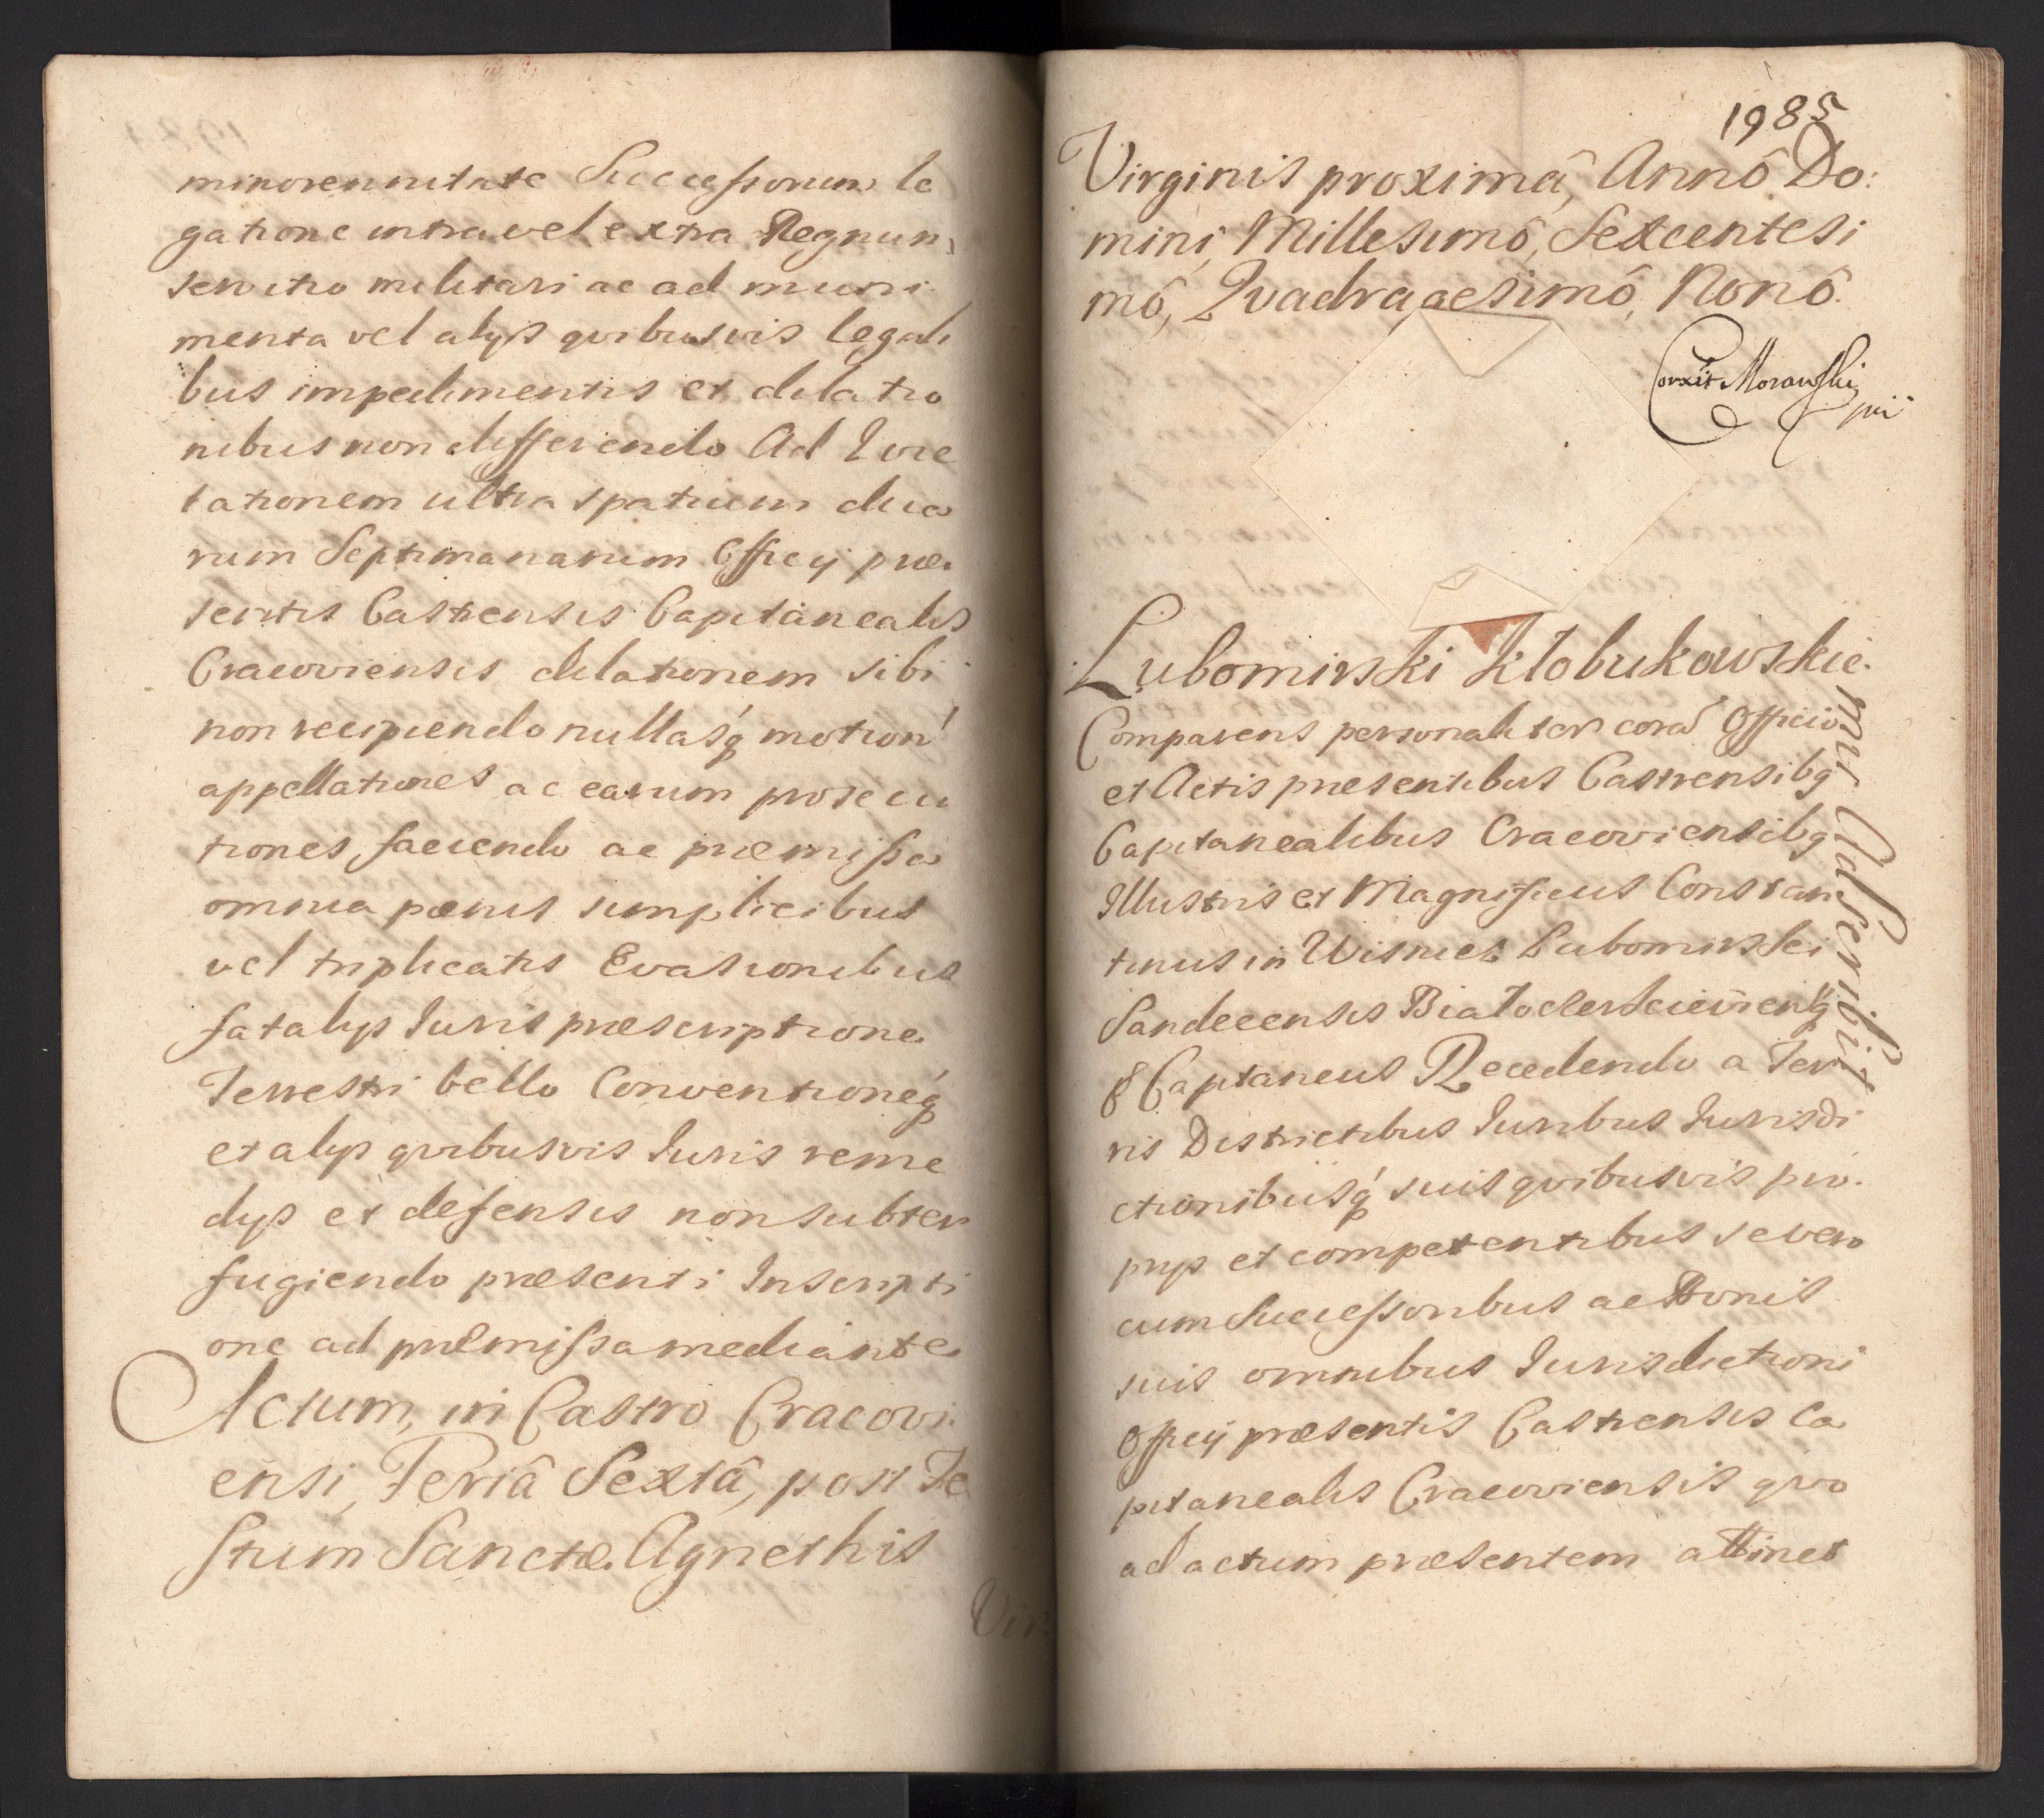 minorennitate Successorum le
gatione intra vel extra Regnum
servitio militari ac ad muni
menta vel alijs qvibusvis legali
bus impedimentis et dilatio
nibus non differendo Ad Iure
tationem ultra spatium dua
rum Septimanarum Officij præ
sentis Castrensis Capitanealis
Cracoviensis dilationem sibi
non recipiendo nullasq́ motion'
appellationes ac earum prosecu
tiones faciendo ac præmissa
omnia pœnis simplicibus
vel triplicatis Evasionibus
fatalijs Iuris præscriptione
Terrestri bello Conventioneq́
et alijs qvibusvis Iuris reme
dijs et defensis non subter
fugiendo præsenti Inscripti
one ad præmissa mediante
Actum, in Castro Cracovi
ensi, Feriâ Sextâ, post Fe
stum Sanctæ Agnethis
Vir
1985
Virginis proximâ, Annô Do:
mini, Millesimô, Sexcentesi
mô, Qvadragesimô, Nonô.
Corrxit Morawski
Lubomirski Kłobukowskie
mu Adscribit
Comparens personaliter corã Officio
et Actis præsentibus Castrensibq
Capitanealibus Cracoviensibq
Illustris et Magnificus Constan
tinus in Wisnicz Lubomirski
Sandecensis Białocerkievienq
& Capitaneus Recedendo a Ter
ris Districtibus Iuribus Iurisdi
ctionibusq́ suis qvibusvis pro
prijs et competentibus se vero
cum Successoribus ac Bonis
suis omnibus Iurisdictioni
Officij præsentis Castrensis Ca
pitanealis Cracoviensis qvo
ad actum præsentem attinet